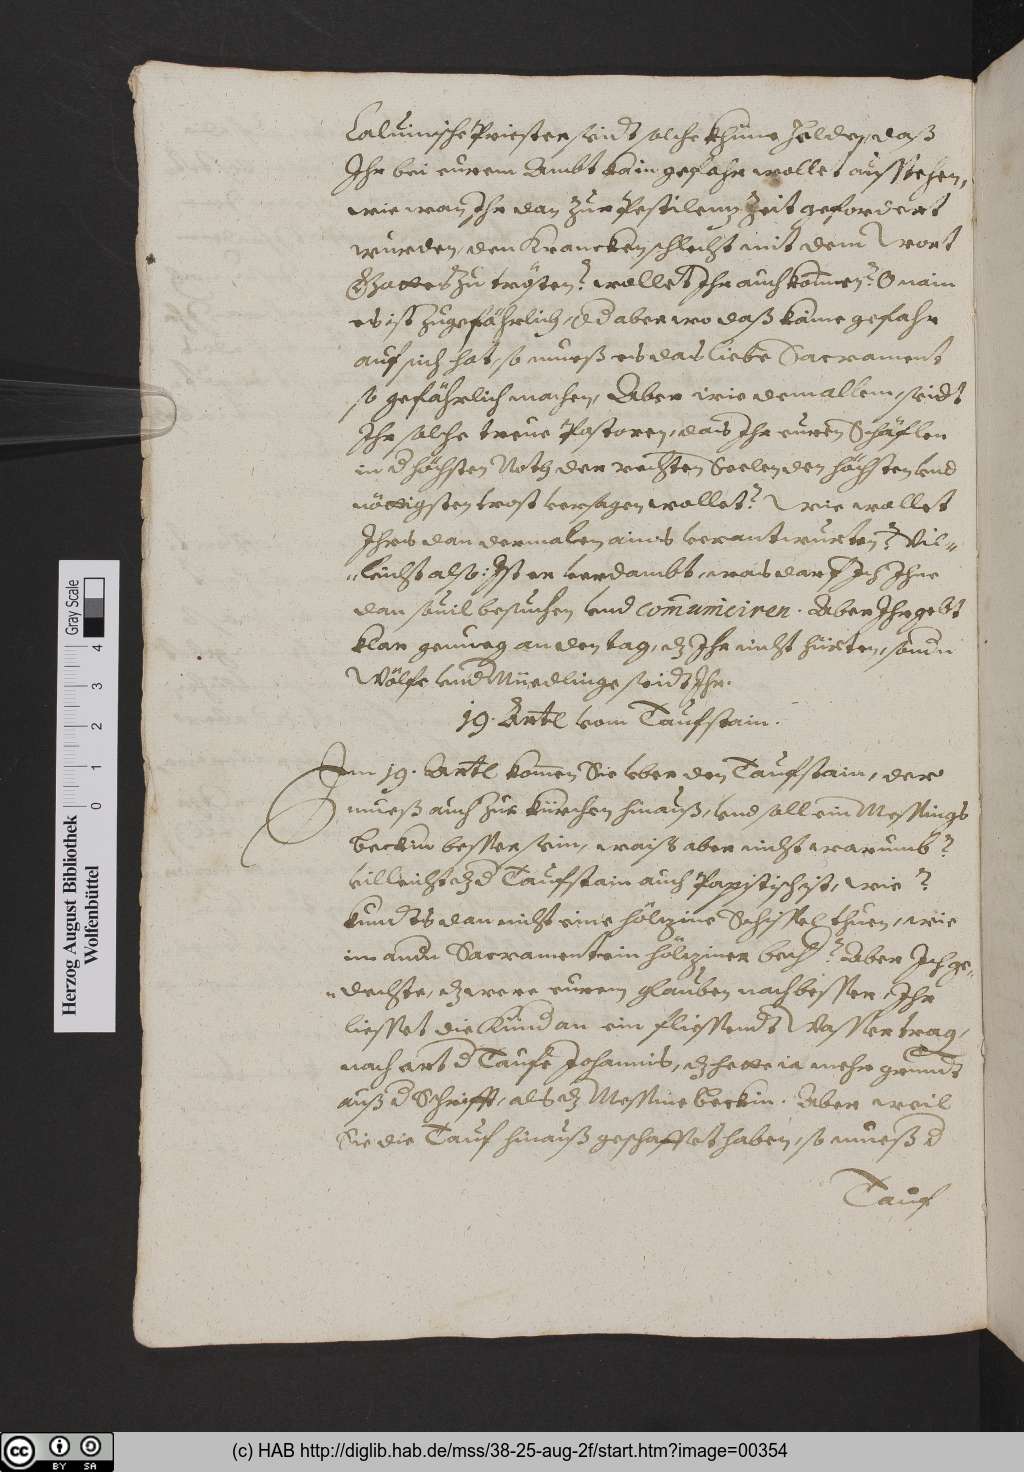 Caluinische Priester seidt solche khüne Helden, daß
Ihr bei eurem Ambt kain gefahr wollet aufstehen,
wie wan Ihr dan zur Pestilenz Zeit gefordert
wurden, den Krancken schlecht mit dem Wort
Gottes zu trösten? wollet Ihr auch komen? O nain
es ist zu gefährlich, d aber wo daß käine gefahr
auf sich hat, so mueß es das liebe Sacrament
so gefährlich machen, Aber wie dem allem, seidt
Ihr solche treue Pastoren, das Ihr euren Schäflen
in d höchsten Noth der rechten Seelen den höchsten vnd
nöttigsten trost versagen wollet? Wie wollet
Ihrs dan dermalen ains verantwurten? Vil-
leicht also: Ist er verdambt, was darf Ich Ihne
dan souil besuchen vnd comuniciren. Aber Ihr gebt
klar genueg an den tag, dz Ihr nicht hürten, sondn
Wölfe vnd Müedlinge seidt Ihr.
19. Artl vom Taufstain.
Im 19. Artl komen Sie vber den Taufstain, der
mueß auch zur kürchen hinauß, vnd soll ein Messings
beckin besser sein, waiß aber nicht warumb?
villeicht dz d Taufstain auch Papistisch ist, wie?
kundts dan nicht eine hölzine Schissel thuen, wie
im andn Sacrament ein hölziner bech? Aber Ich ge-
dechte, dz were eurem glauben nach besser, Ihr
liesset die Kind an ein fliessendt Wasser trag,
nach art d Taufe Johannis, dz hette ia mehr grundt
auß d Schrifft, als dz Messine beckin. Aber weil
Sie die Tauf hinauß geschaffet haben, so mueß d
Tauf
Herzog August Bibliothek
Wolfenbüttel
0 1 2 3 4
Gray Scale
cc BY SA
(c) HAB http://diglib.hab.de/mss/38-25-aug-2f/start.htm?image=00354